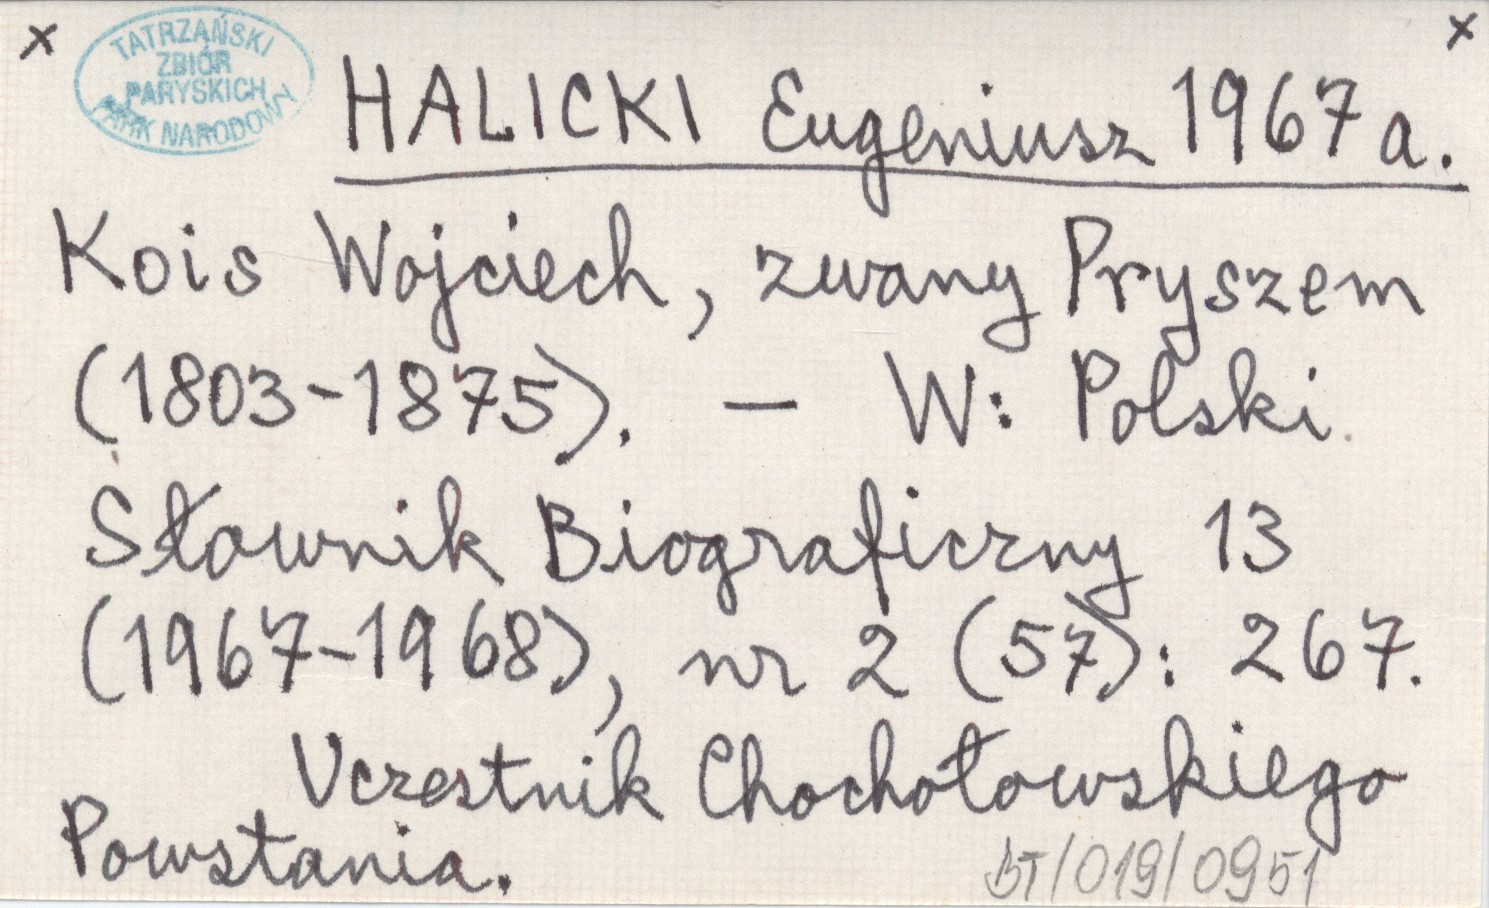 x
x
TATRZAŃSKI
ZBIÓR
PARYSKICH
PARK NARODOWY
HALICKI Eugeniusz 1967a.
Kois Wojciech, zwany Pryszem
(1803-1875). — W: Polski
Słownik Biograficzny 13
(1967-1968), nr 2 (57): 267.
Uczestnik Chochołowskiego
Powstania.
BT/019/0951